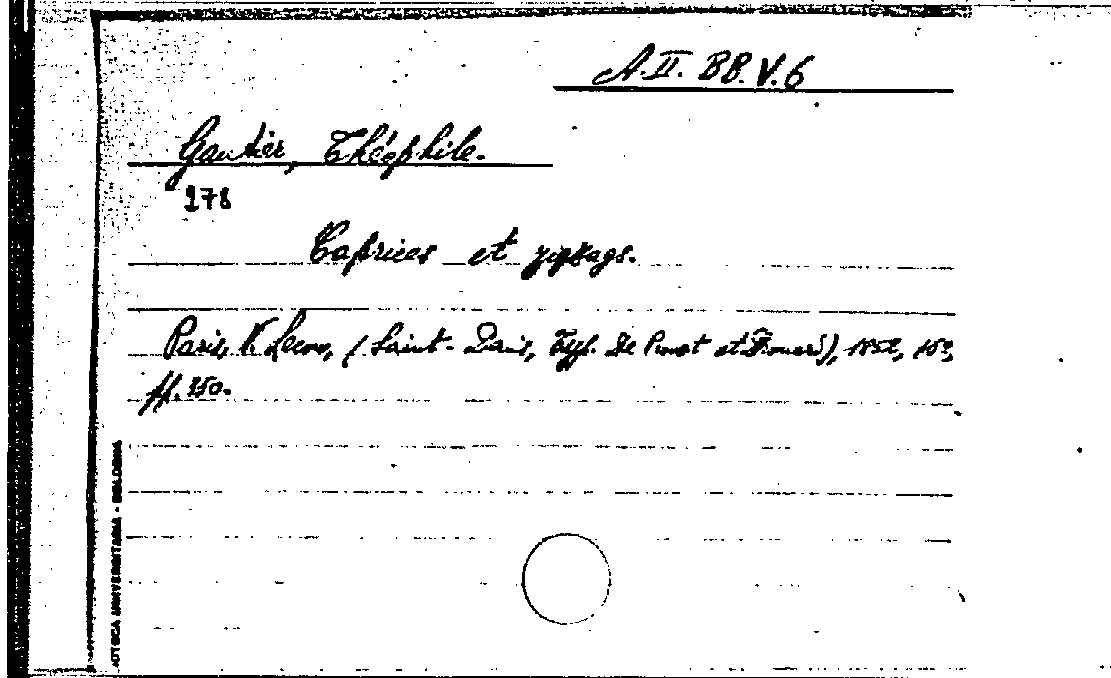 A.II.BB.V.6
Gautier, Théophile.
278
Caprices et zigzags.
Paris, V. Lecou, (Saint-Denis, Typ. De Prevot et Drouard), 1852, 16º,
pp. 350.
OTECA UNIVERSITARIA - BOLOGNA